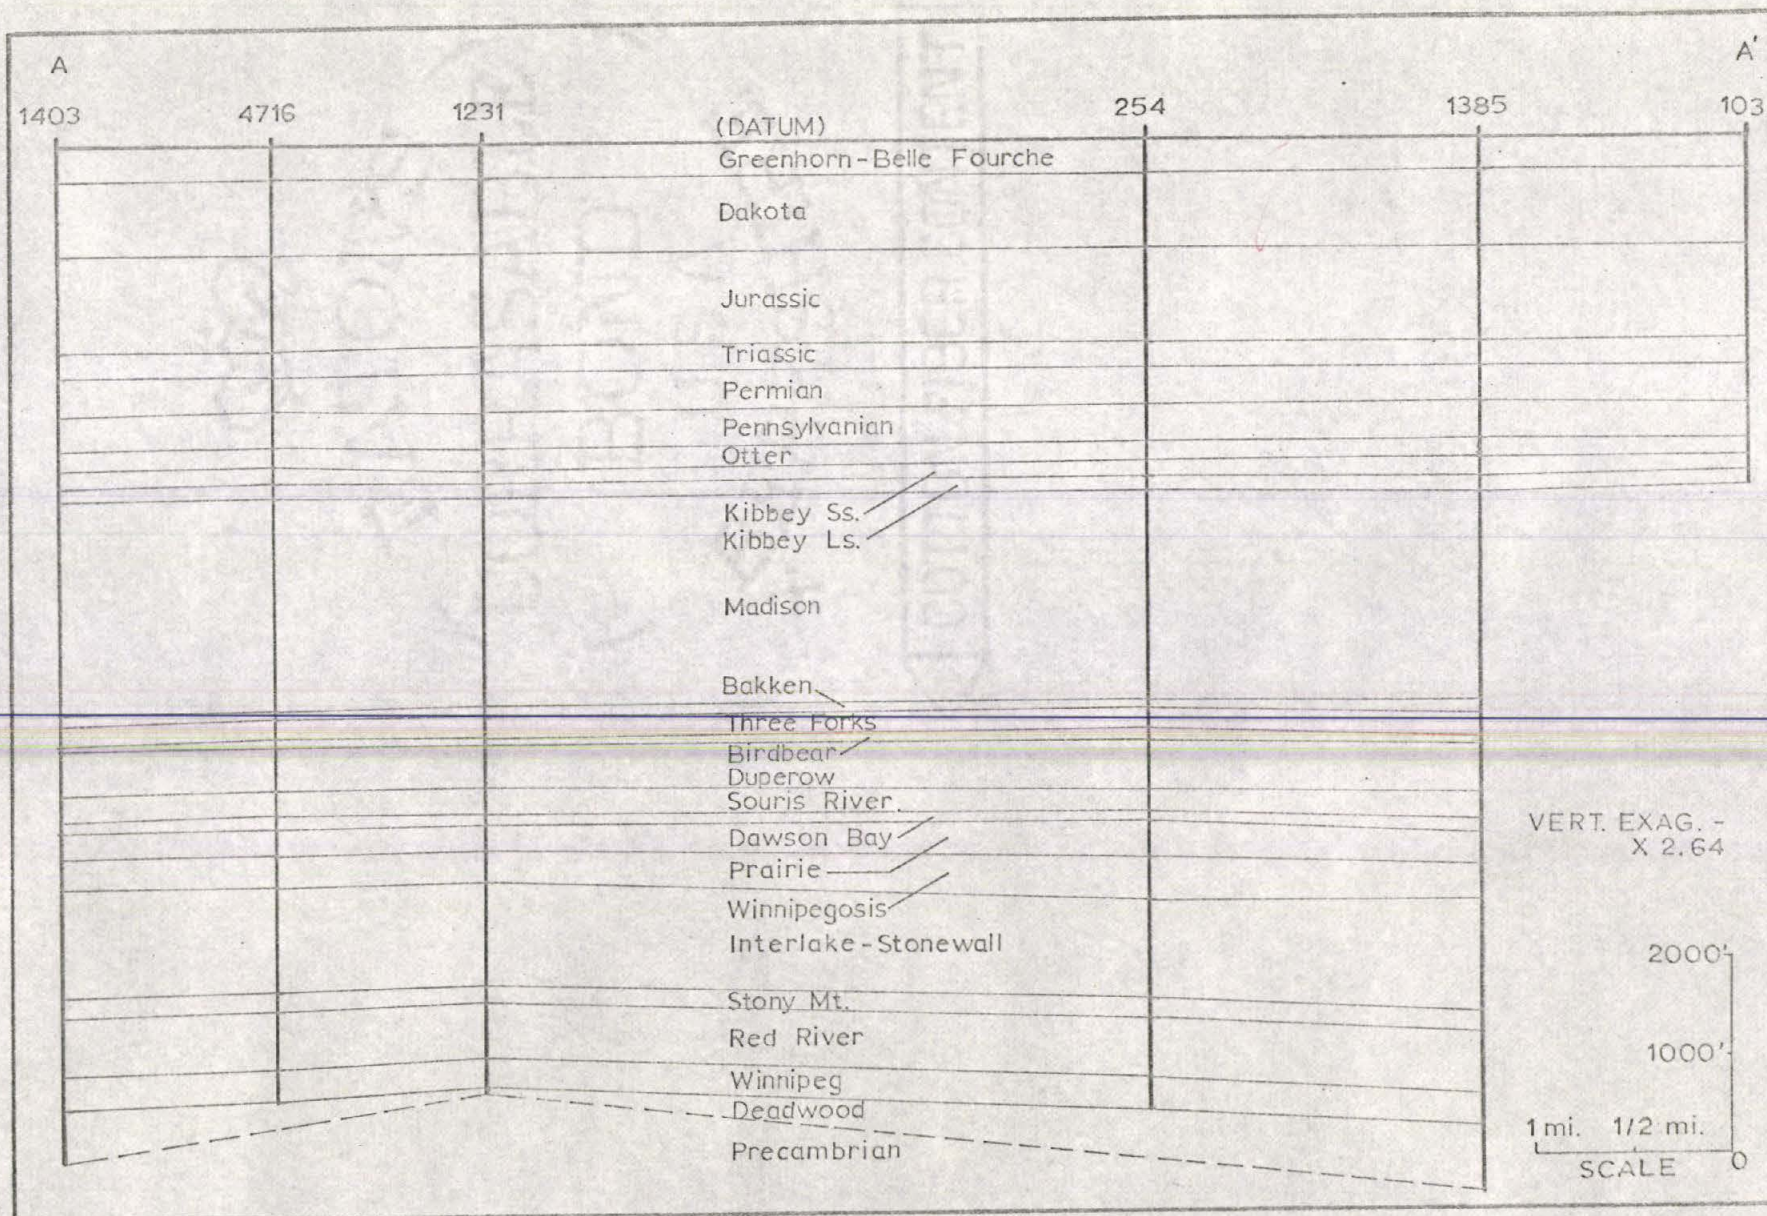 A A'
1403 4716 1231 254 1385 103
(DATUM)
Greenhorn-Belle Fourche
Dakota
Jurassic
Triassic
Permian
Pennsylvanian
Otter
Kibbey Ss.
Kibbey Ls.
Madison
Bakken
Three Forks
Birdbear
Duperow
Souris River
Dawson Bay
Prairie
Winnipegosis
Interlake-Stonewall
Stony Mt.
Red River
Winnipeg
Deadwood
Precambrian
VERT. EXAG. -
X 2.64
2000'
1000'
1 mi. 1/2 mi.
SCALE 0